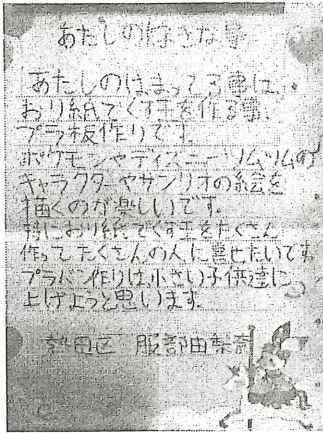 あたしの好きな事
あたしのはまってる事は、
おり紙でくす玉を作る事、
プラ板作りです。
ポケモンやディズニーツムツムの
キャラクターやサンリオの絵を
描くのが楽しいです。
特におり紙でくす玉をたくさん
作ってたくさんの人に見せたいです
プラバン作りは小さい子供達に
上げよっと思います。
熱田区 服部由梨奈